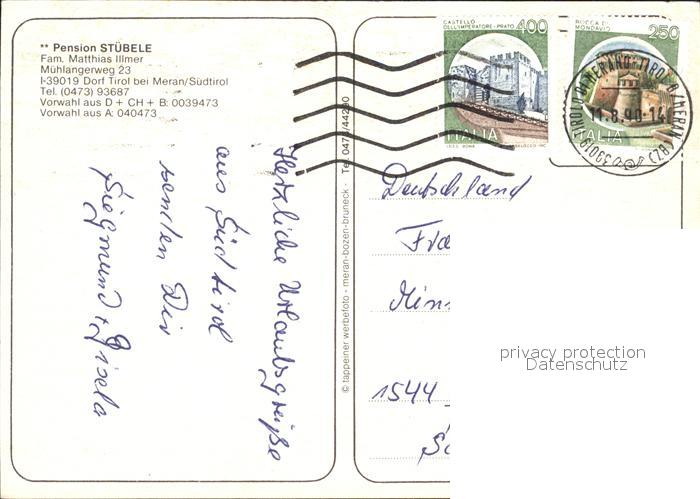 ** Pension STÜBELE
Fam. Matthias Illmer
Mühlangerweg 23
I-39019 Dorf Tirol bei Meran/Südtirol
Tel. (0473) 93687
Vorwahl aus D + CH + B: 0039473
Vorwahl aus A: 040473
Herzliche Urlaubsgrüße
aus Südtirol
senden Dir
Siegmund + Gisela
© tappeiner werbefoto - meran-bozen-bruneck · Tel.
CASTELLO
DELL'IMPERATORE - PRATO
400
ITALIA
ROCCA DI
MONDAVIO
250
ITALIA
11.8.90-14
Deutschland
1544
privacy protection
Datenschutz